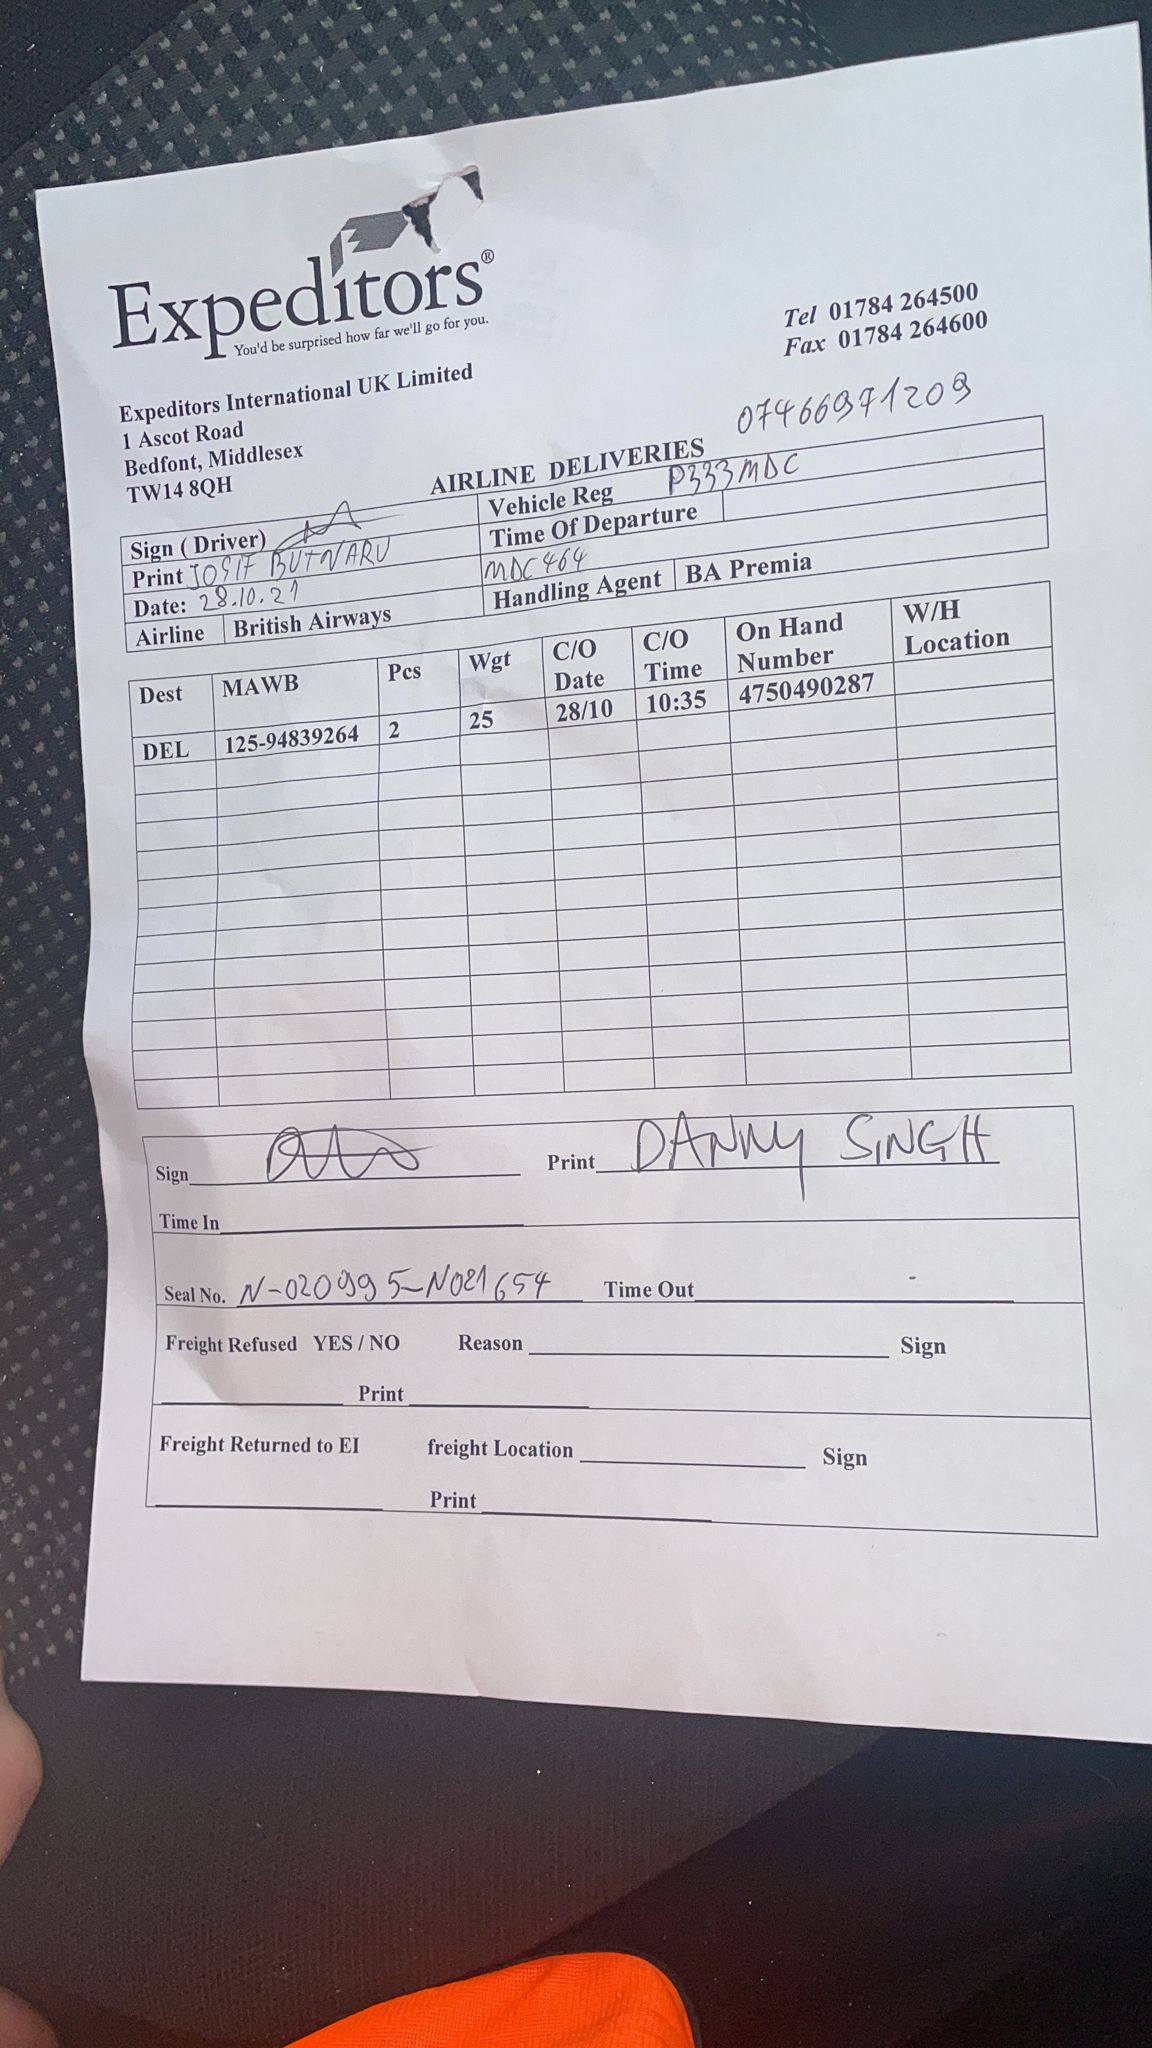 Expeditors®
You'd be surprised how far we'll go for you.
Expeditors International UK Limited
1 Ascot Road
Bedfont, Middlesex
TW14 8QH
Tel 01784 264500
Fax 01784 264600
07466971209
AIRLINE DELIVERIES
Sign ( Driver) Vehicle Reg P333MDC
Print JOSIF BUTNARU Time Of Departure
Date: 28.10.21 MDC464
Airline British Airways Handling Agent BA Premia
Dest MAWB Pcs Wgt C/O Date C/O Time On Hand Number W/H Location
DEL 125-94839264 2 25 28/10 10:35 4750490287
Sign Print DANNY SINGH
Time In
Seal No. N-020995-N021654 Time Out
Freight Refused YES / NO Reason Sign
Print
Freight Returned to EI freight Location Sign
Print